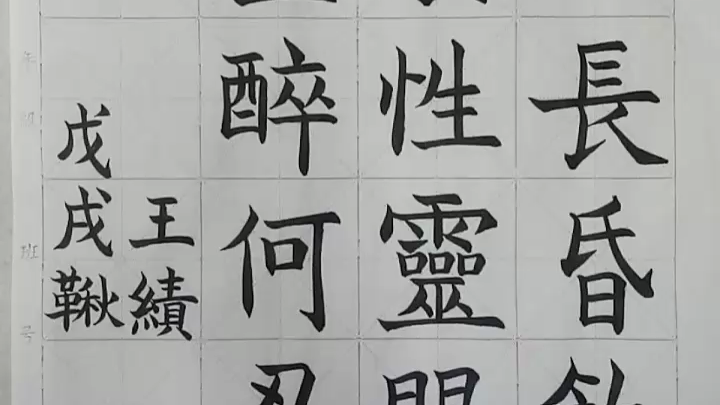 長昏
性靈
醉何
王績
戊戌鞦
班
号